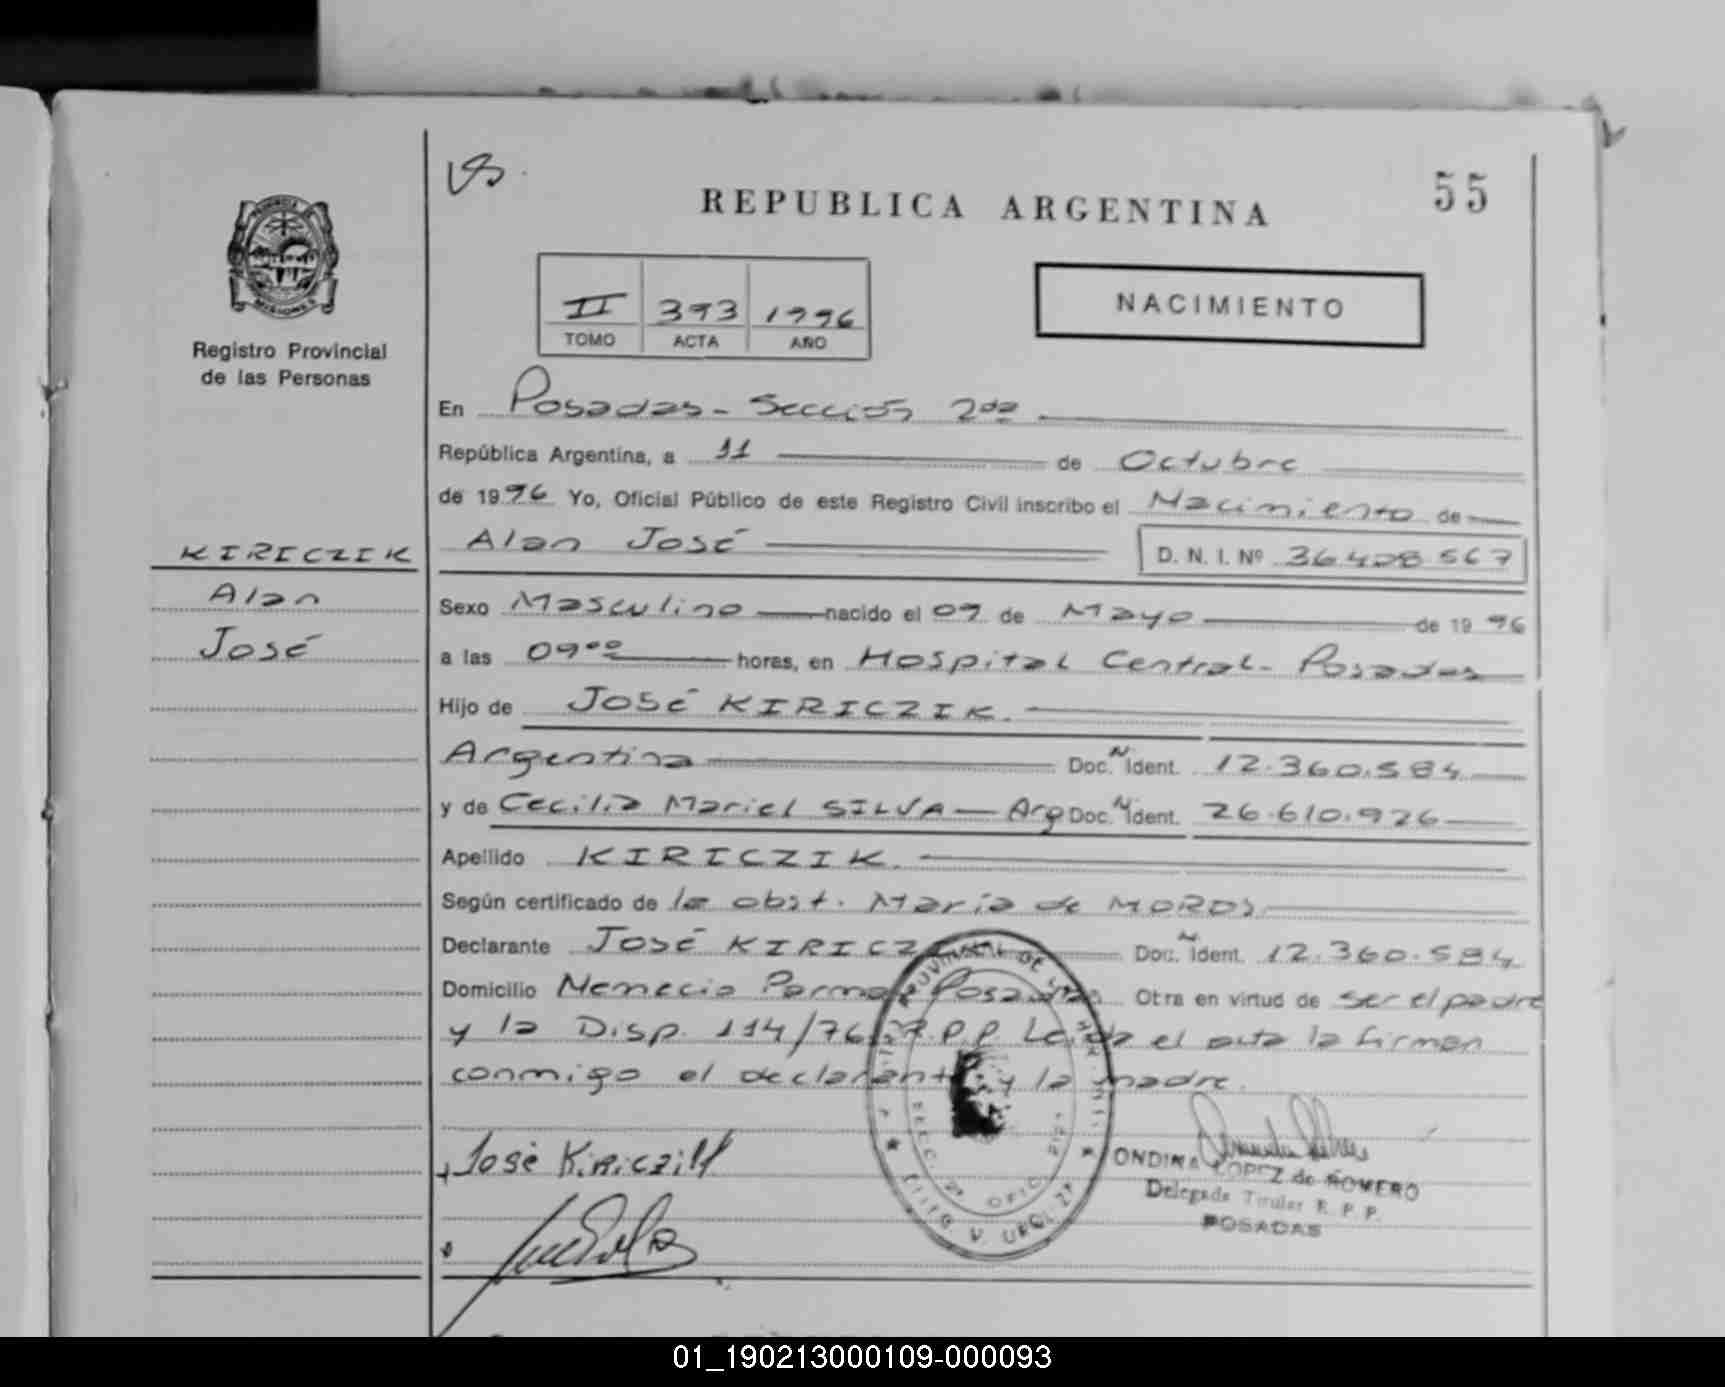 55
REPUBLICA ARGENTINA
PROVINCIA
MISIONES
Registro Provincial
de las Personas
II 393 1996
TOMO ACTA AÑO
NACIMIENTO
En Posadas - Sección 2da
República Argentina, a 11 de Octubre
de 1996 Yo, Oficial Público de este Registro Civil inscribo el Nacimiento de
KIRICZIK
Alan José D. N. I. Nº 36.428.567
Alan
José
Sexo Masculino nacido el 09 de Mayo de 1996
a las 09 00 horas, en Hospital Central - Posadas
Hijo de JOSÉ KIRICZIK.
Argentina Doc. N Ident. 12.360.584
y de Cecilia Mariel SILVA - Arg Doc. N Ident. 26.610.926
Apellido KIRICZIK.
Según certificado de la obst. María de MOROS
Declarante JOSÉ KIRICZIK Doc. N Ident. 12.360.584
Domicilio Nemecio Parma - Posadas Otra en virtud de ser el padre
y la Disp. 114/76 R.P.P. Leída el acta la firman
conmigo el declarante y la madre.
José Kiriczik
ONDINA LOPEZ de ROMERO
Delegada Titular R. P. P.
POSADAS
01_190213000109-000093